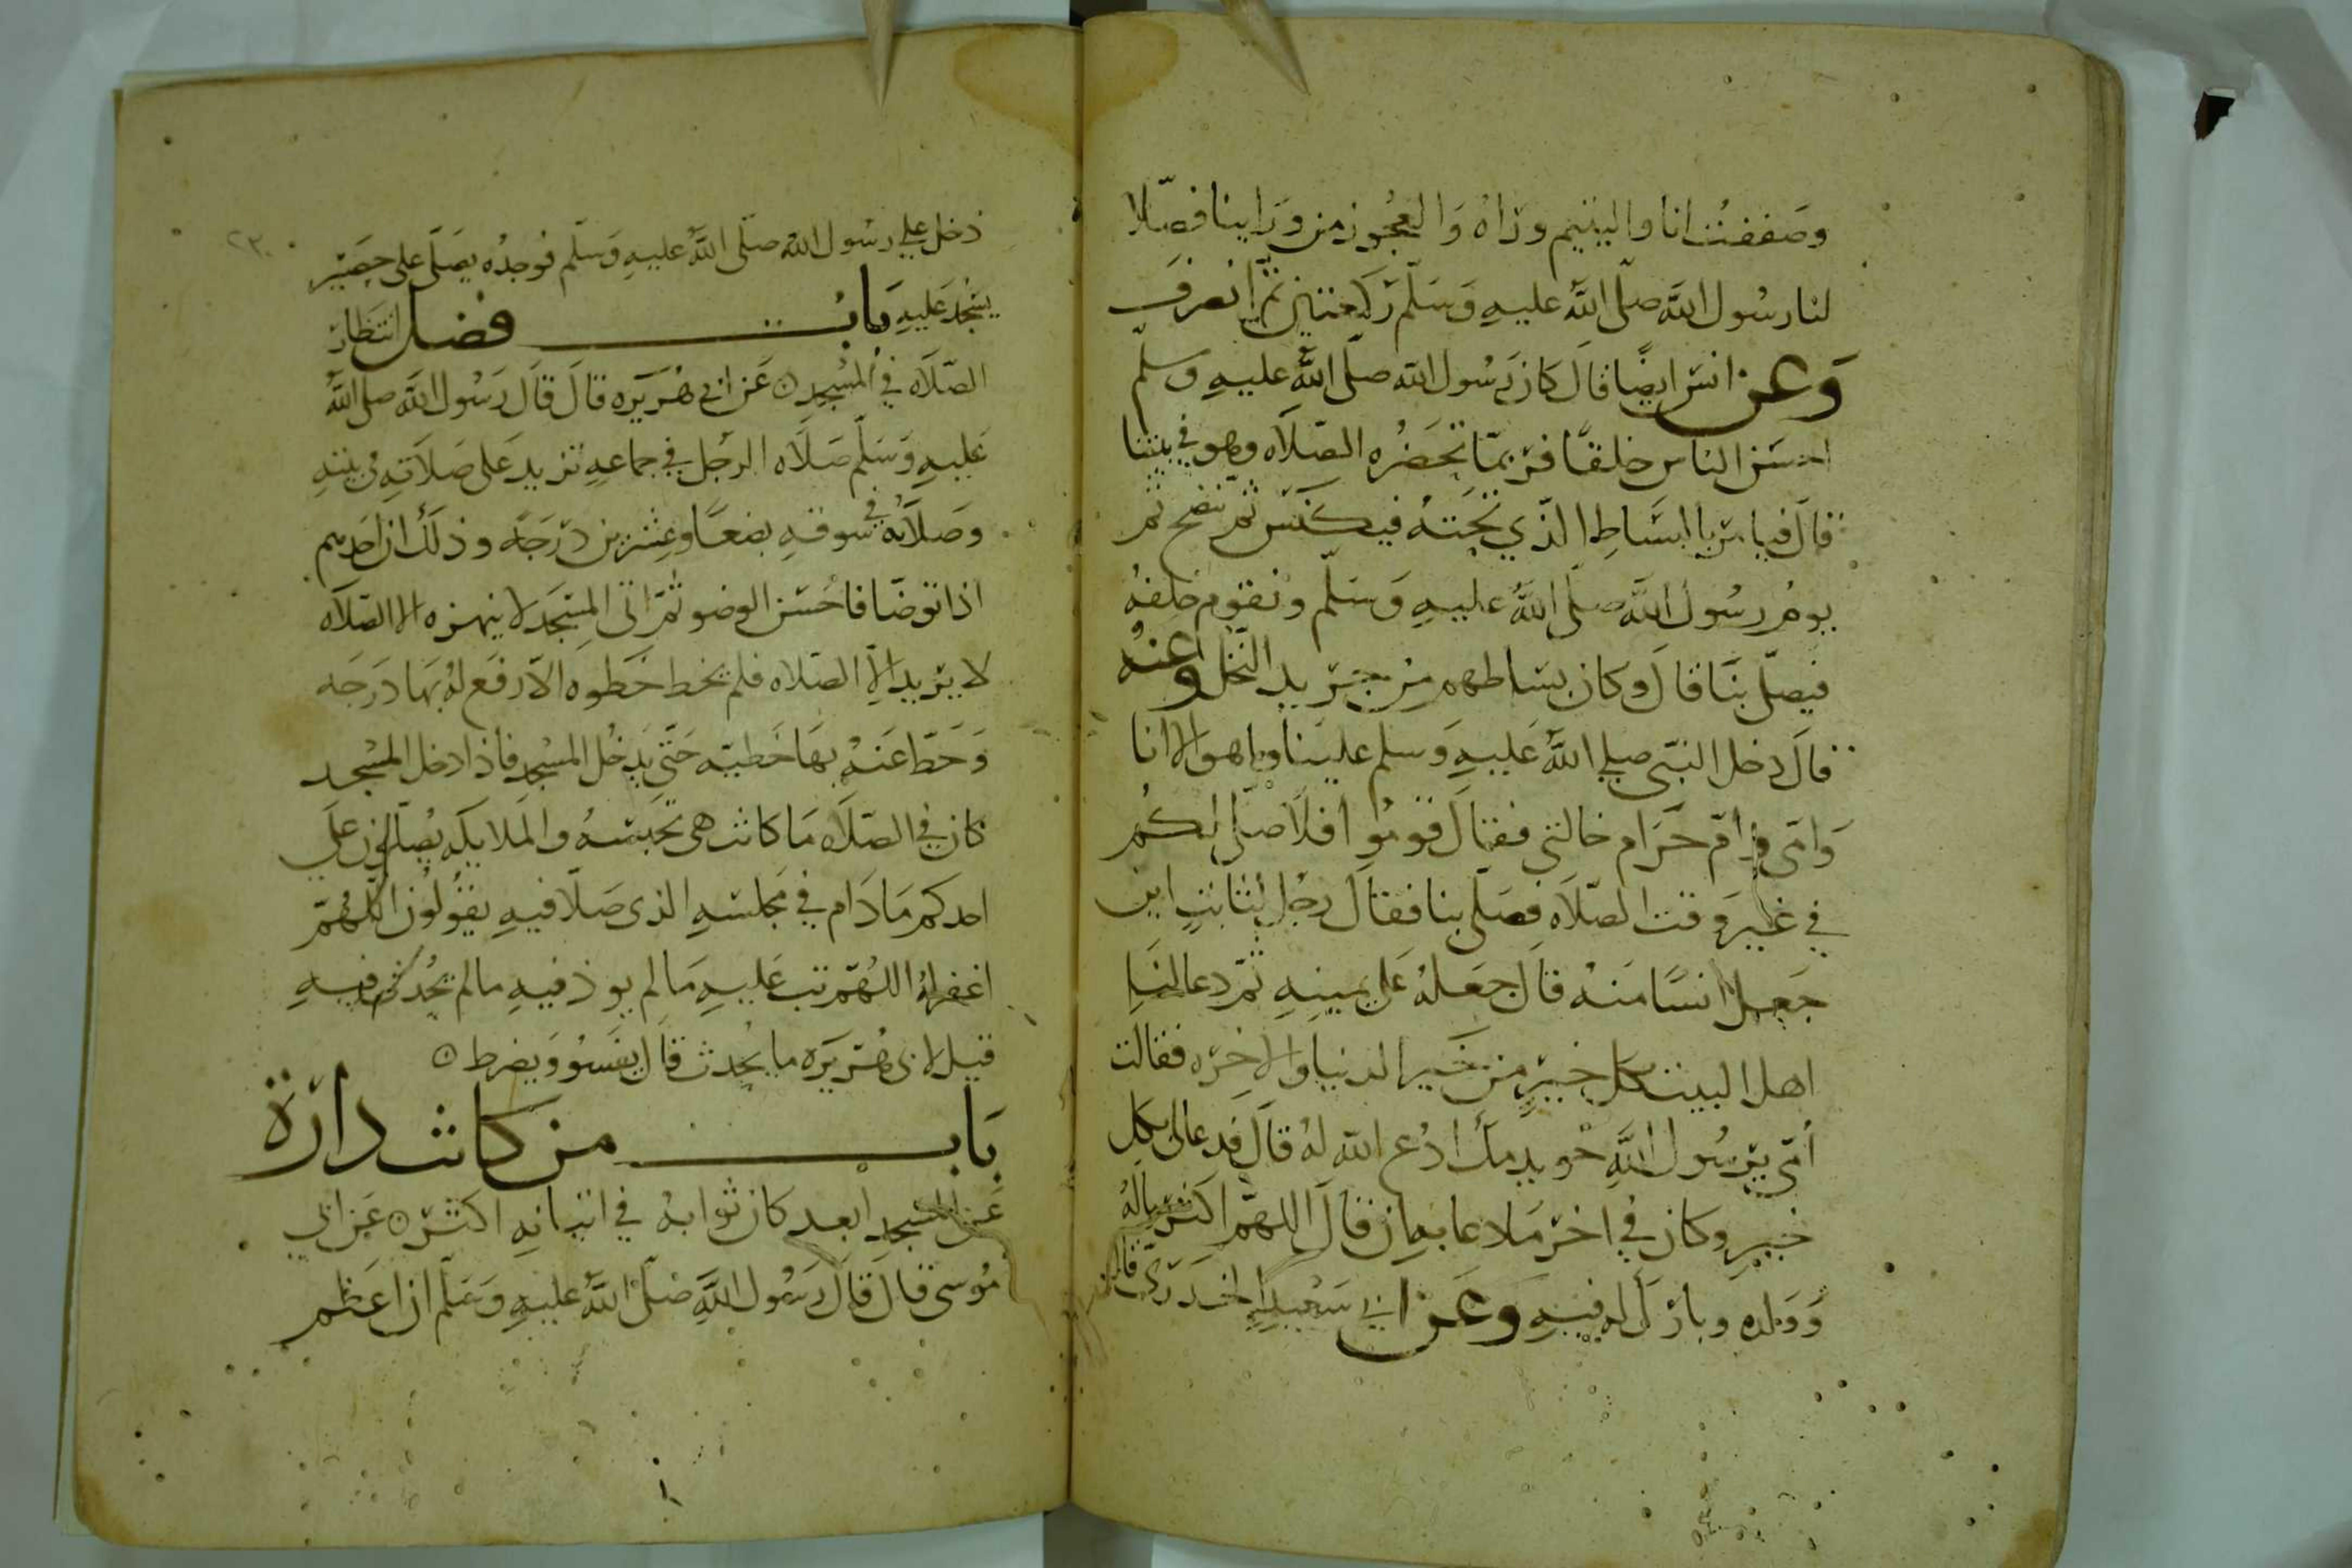 وصففت انا واليتيم وراه والعجوز من وراينا فصلا
لنا رسول الله صلى الله عليه وسلم ركعتين ثم انصرف
وعن انس ايضا قال كان رسول الله صلى الله عليه وسلم
احسن الناس خلقا فربما تحضره الصلاه وهو في بيتنا
قال فيامر بالبساط الذي تحته فيكنس ثم ينضح ثم
يوم رسول الله صلى الله عليه وسلم ونقوم خلفه
فيصلي بنا قال وكان بساطهم من جريد النخل وعنه
قال دخل النبي صلى الله عليه وسلم علينا وما هو الا انا
وامي وام حرام خالتي فقال قوموا فلاصلي لكم
في غير وقت الصلاه فصلى بنا فقال رجل لثابت اين
جعل انسا منه قال جعله على يمينه ثم دعا لنا
اهل البيت بكل خير من خير الدنيا والاخره فقالت
امي يرسول الله خويدمك ادع الله له قال فدعا لي بكل
خير وكان في اخر ما دعا به ان قال اللهم اكثر ماله
وولده وبارك له فيه وعن ابي سعيد الخدري قال
٢٣
دخل علي رسول الله صلى الله عليه وسلم فوجده يصلي على حصير
يسجد عليه باب فضل انتظار
الصلاه في المسجد ۞ عن ابي هريره قال قال رسول الله صلى الله
عليه وسلم صلاه الرجل في جماعه تزيد على صلاته في بيته
وصلاته في سوقه بضعا وعشرين درجه وذلك ان احدهم
اذا توضا فاحسن الوضو ثم اتى المسجد لا ينهزه الا الصلاه
لا يريد الا الصلاه فلم يخط خطوه الا رفع له بها درجه
وحط عنه بها خطيه حتى يدخل المسجد فاذا دخل المسجد
كان في الصلاه ما كانت هي تحبسه والملايكه يصلون على
احدكم ما دام في مجلسه الذي صلا فيه يقولون اللهم
اغفر له اللهم تب عليه ما لم يوذ فيه ما لم يحدث فيه
قيل لابي هريره ما يحدث قال يفسو ويضرط ۞
باب من كانت داره
عن المسجد ابعد كان ثوابه في اتيانه اكثر ۞ عن ابي
موسى قال قال رسول الله صلى الله عليه وسلم ان اعظم